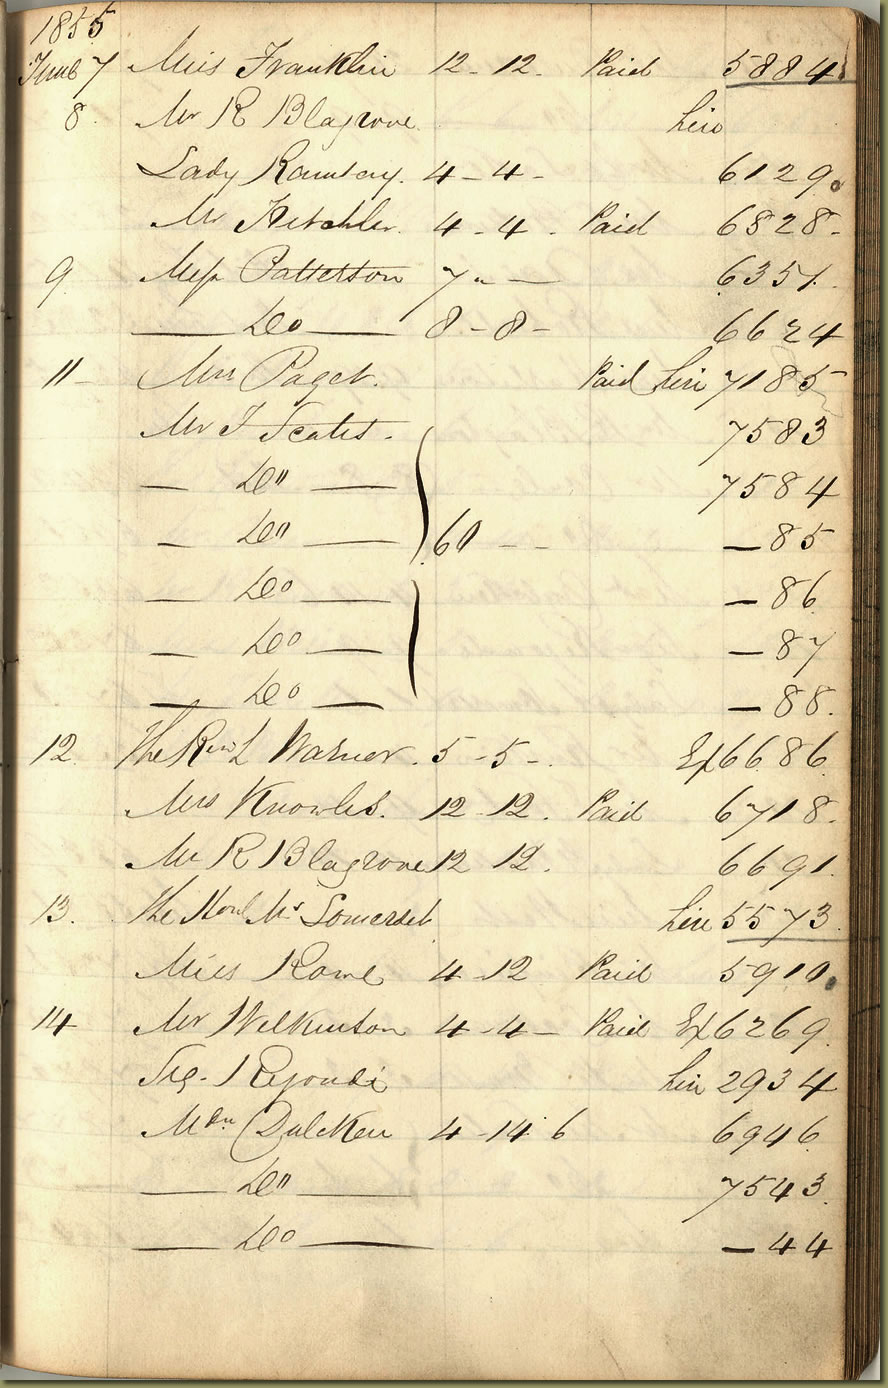 1855
June 7 Miss Franklin 12-12. Paid 5884
8. Mr R Blagrove. Lin
Lady Ramsay. 4-4- 6129.
Mr 4-4. Paid 6828-
9. Mess Patterson 7 " — 6351.
— Do — 8-8- 6624
11- Mrs Paget. Paid Lin 7185
Mr T Scates. 7583
— Do — 7584
— Do — 60 - - — 85
— Do — — 86
— Do — — 87
— Do — — 88.
12. The Revd L Warner. 5-5-. Ex 6686
Mrs Knowles. 12-12. Paid 6718.
Mr R Blagrove 12 12. 6691.
13. The Honl Mrs Somerset Lin 5573
Miss Rowe 4-12 Paid 5910.
14 Mr Wilkinson 4-4- Paid Ex 6269.
Sig. Lin 2934
Mdn Dulcken 4-14 6 6946
— Do — 7543.
— Do — — 44